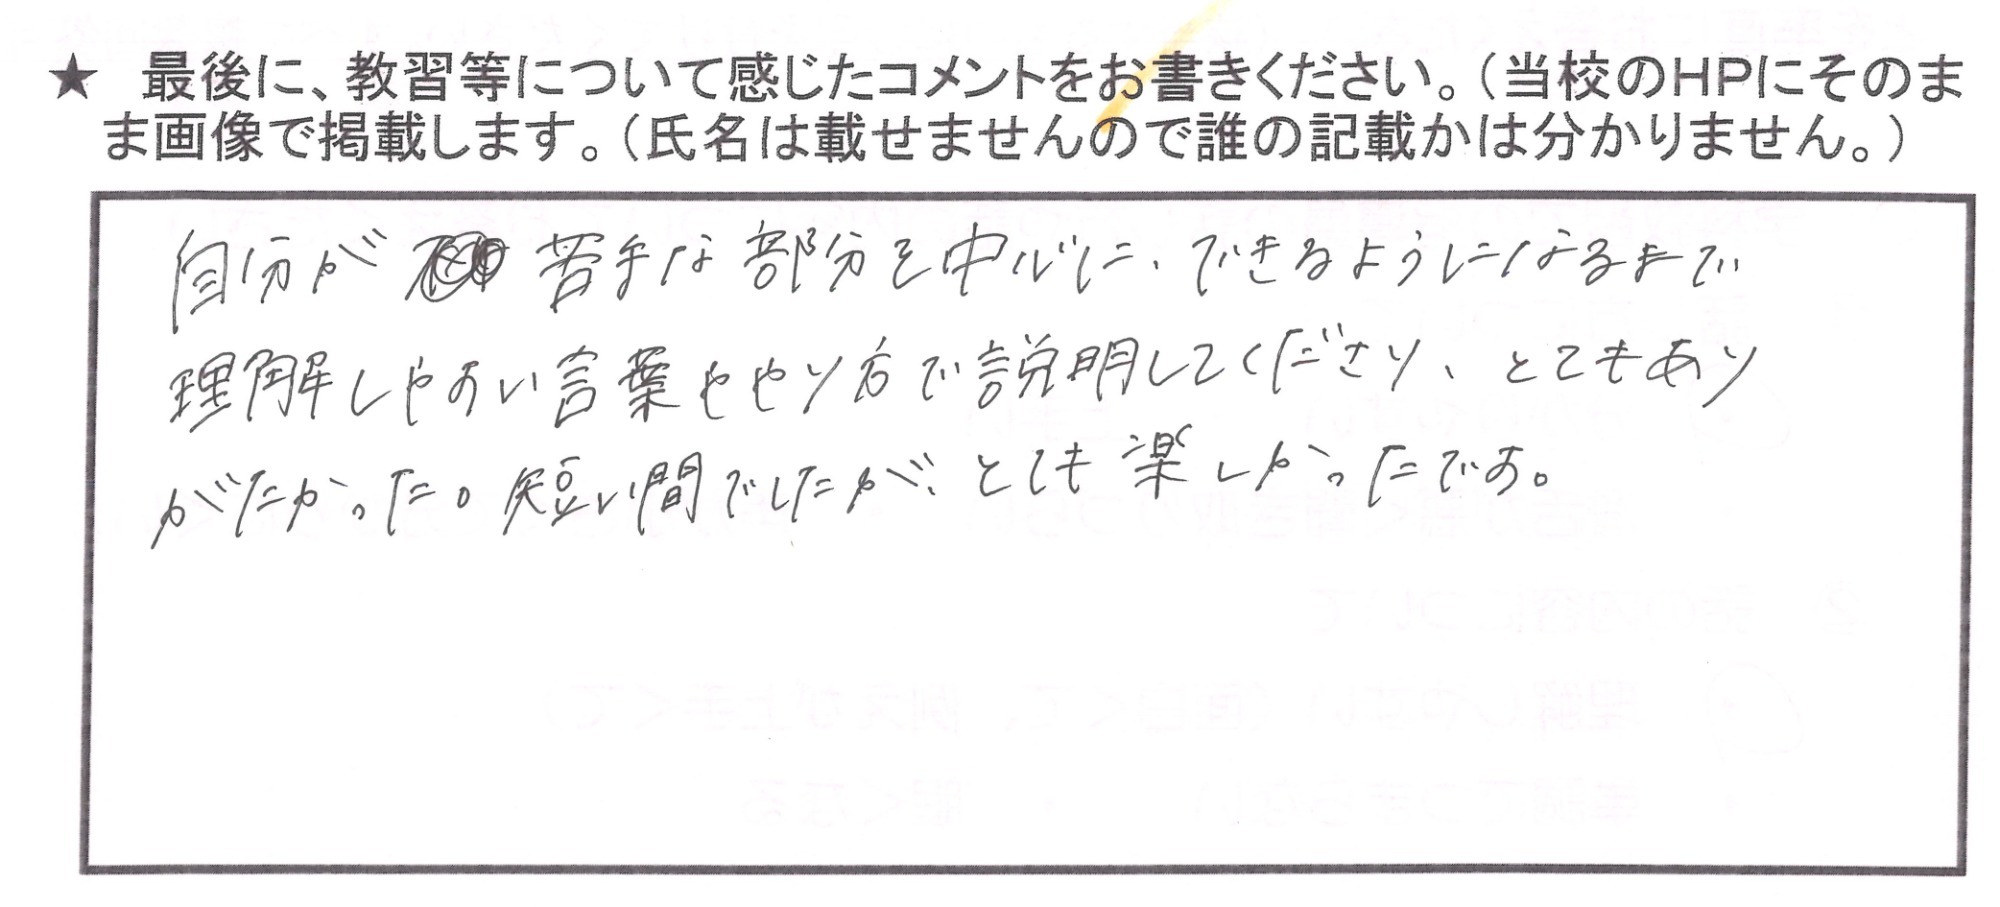 ★ 最後に、教習等について感じたコメントをお書きください。(当校のHPにそのま
ま画像で掲載します。(氏名は載せませんので誰の記載かは分かりません。)
自分が 苦手な部分を中心に、できるようになるまで
理解しやすい言葉ややり方で説明してくださり、とてもあり
がたかった。短い間でしたが、とても楽しかったです。